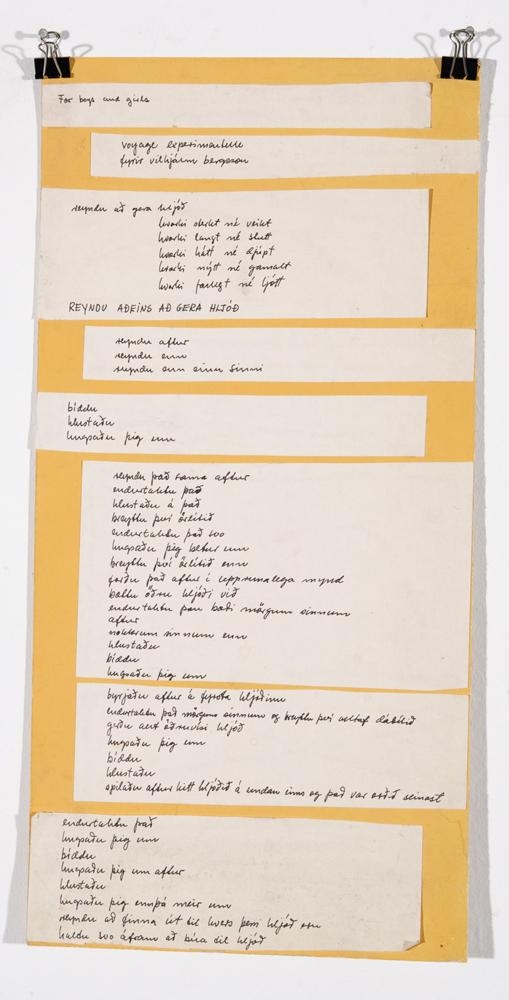 For boys and girls
voyage experimentelle
fyrir vilhjálm bergsson
reyndu að gera hljóð
hvorki sterkt né veikt
hvorki langt né stutt
hvorki hátt né djúpt
hvorki nýtt né gamalt
hvorki fallegt né ljótt
REYNDU AÐEINS AÐ GERA HLJÓÐ
reyndu aftur
reyndu enn
reyndu enn einu sinni
bíddu
hlustaðu
hugsaðu þig um
reyndu það sama aftur
endurtaktu það
hlustaðu á það
breyttu því örlítið
endurtaktu það svo
hugsaðu þig betur um
breyttu því örlítið enn
gerðu það aftur í upprunalega mynd
bættu öðru hljóði við
endurtaktu þau bæði mörgum sinnum
aftur
nokkrum sinnum enn
hlustaðu
bíddu
hugsaðu þig um
byrjaðu aftur á fyrsta hljóðinu
endurtaktu það mörgum sinnum og breyttu því alltaf dálítið
gerðu öðruvísi hljóð
hugsaðu þig um
bíddu
hlustaðu
spilaðu aftur hitt hljóðið á undan eins og það var orðið seinast
endurtaktu það
hugsaðu þig um
bíddu
hugsaðu þig um aftur
hlustaðu
hugsaðu þig ennþá meir um
reyndu að finna út til hvers þessi hljóð eru
haltu svo áfram að búa til hljóð